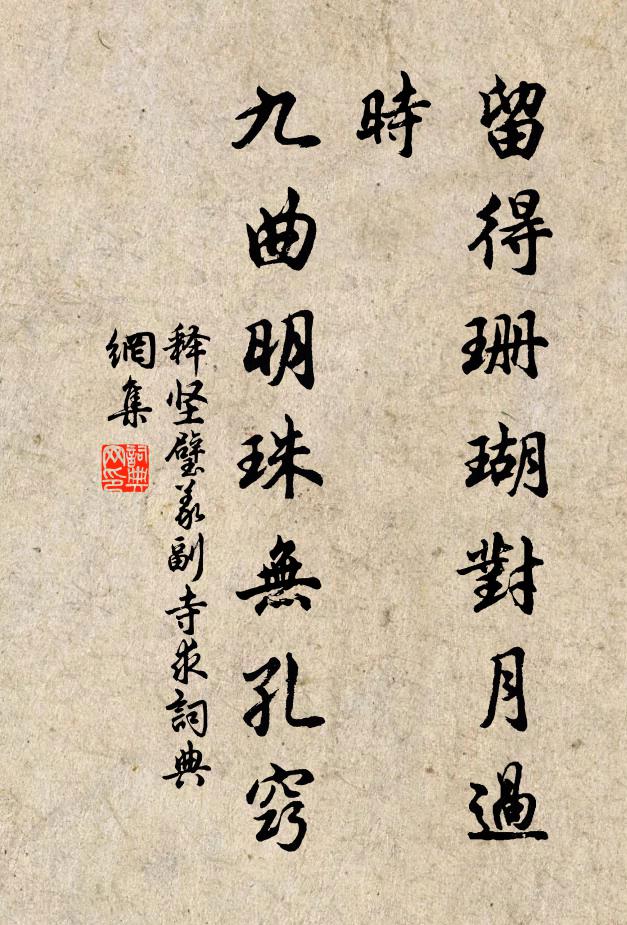 留得珊瑚對月過
時
九曲明珠無孔竅
释坚璧義副寺求詞典
網集
詞典
网印